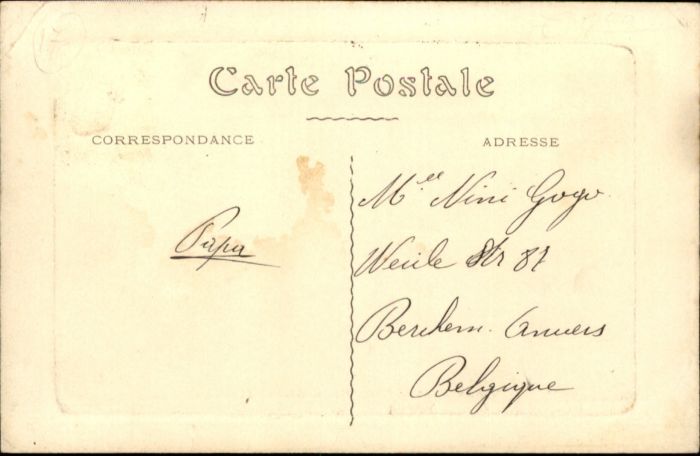 Carte Postale
CORRESPONDANCE
ADRESSE
Papa
Mlle Nini Gogo
Weule Str 87
Berchem. Anvers
Belgique